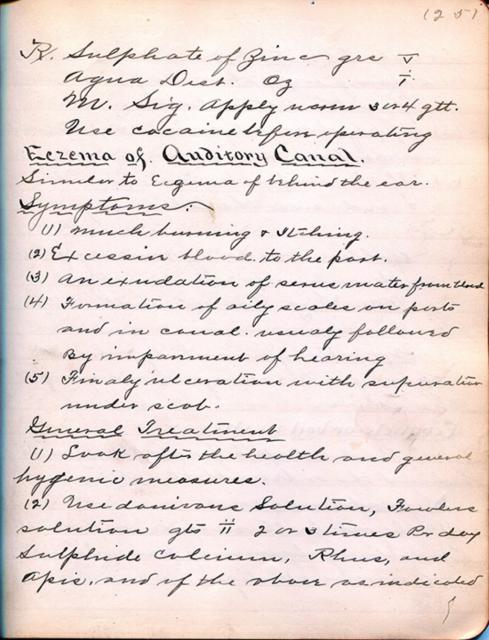 (251
R. Sulphate of Zinc grs v
Aqua Dist. Oz i
M. Sig. Apply warm 3 or 4 gtt.
Use cocaine before operating
Eczema of Auditory Canal.
Similar to Eczema of behind the ear.
Symptoms.
(1) Much burning & Itching.
(2) Excessive blood to the part.
(3) An exudation of serus water from blood
(4) Formation of oily scales on parts
and in canal. usualy followed
By impairment of hearing
(5) Finaly ulceration with supuration
under scab.
General Treatment
(1) Look after the health and general
hygenic measures.
(2) Use donivans Solution, Fowlers
solution gts ii 2 or 3 times Per day
Sulphide calcium, Rhus, and
Apis, and if the above as indicated